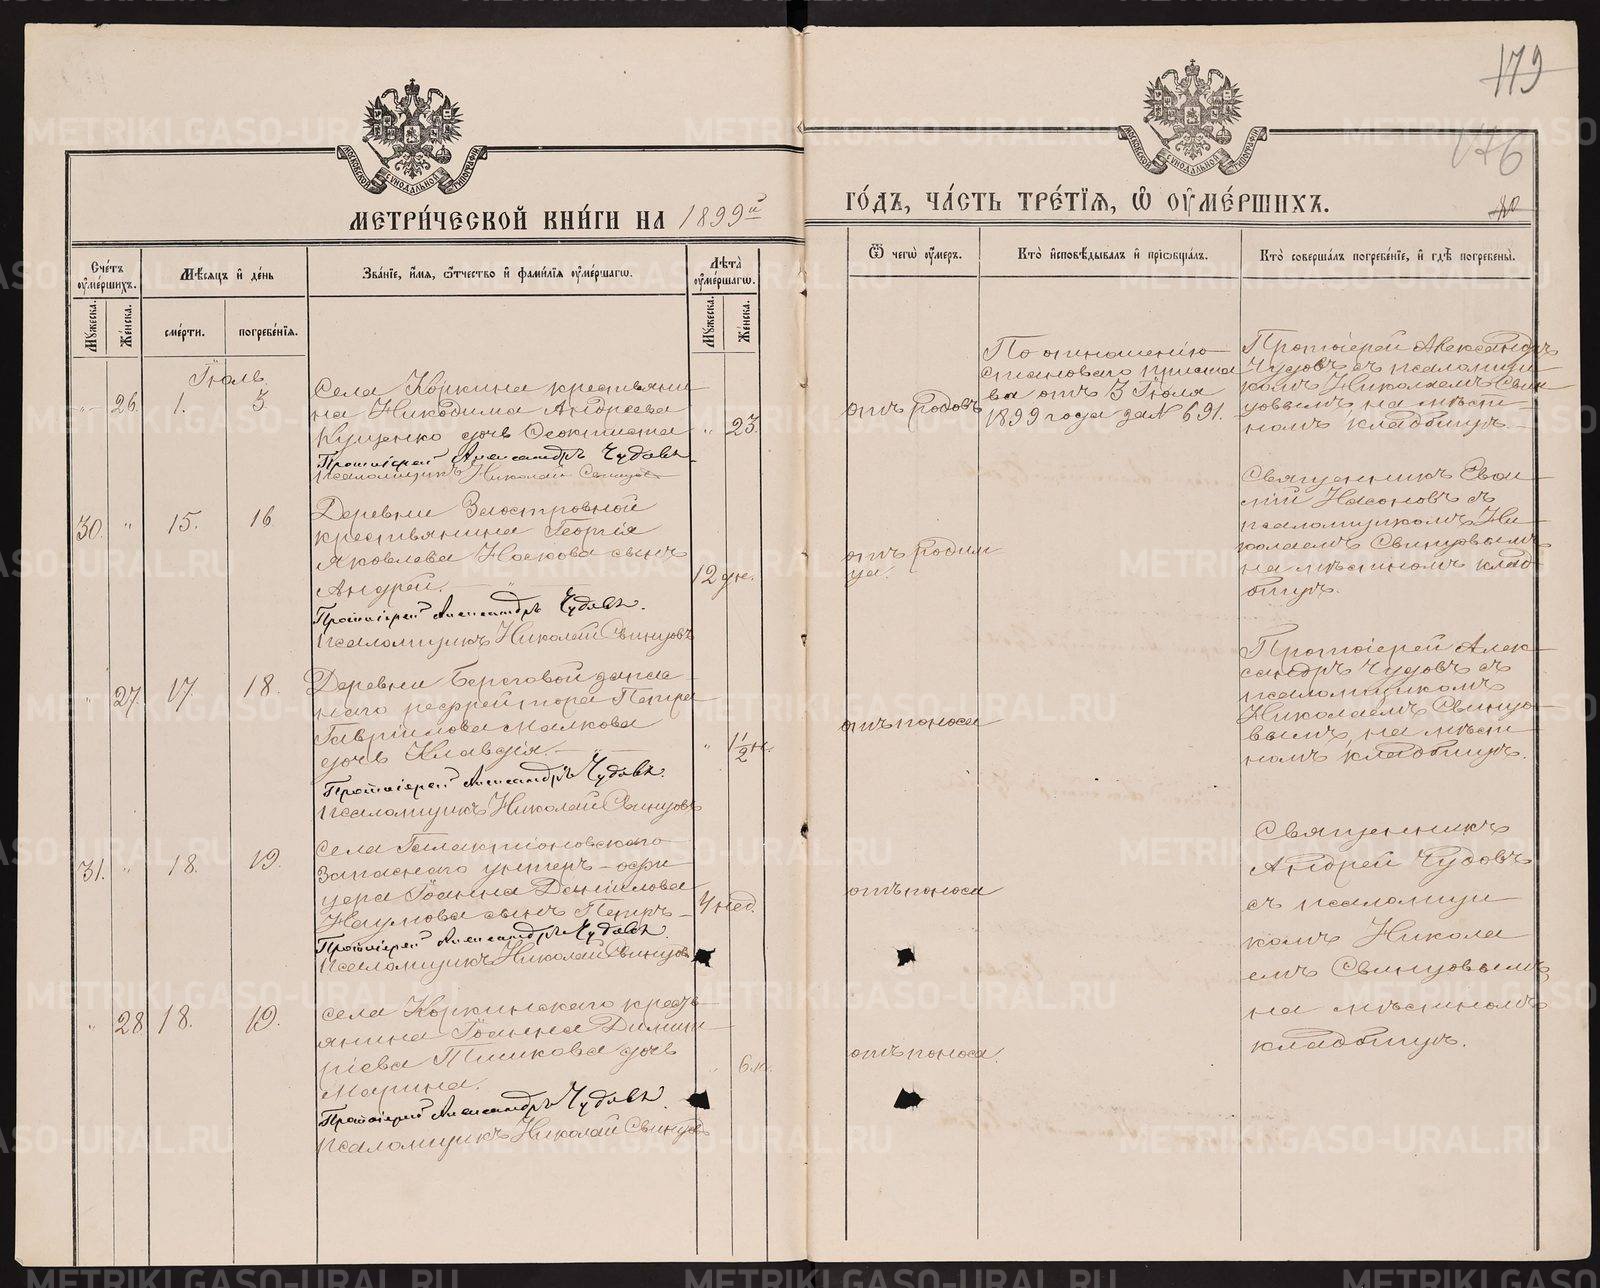 179
176
МЕТРИ́ЧЕСКОЙ КНИ́ГИ НА 1899й
ГО́ДЪ, ЧА́СТЬ ТРЕ́ТІѦ, Ѡ҆ ОУ҆МЕ́РШИХЪ.
Сче́тъ оу҆ме́ршихъ.
Мѣ́сѧцъ и҆ де́нь
Зва́нїе, и҆́мѧ, ѻ҆́тчество и҆ фами́лїѧ оу҆ме́ршагѡ.
Лѣ̀та̀ оу҆ме́ршагѡ.
Ѿ чегѡ̀ оу҆́меръ.
Кто̀ и҆сповѣ́дывалъ и҆ прїѡбща́лъ.
Кто̀ соверша́лъ погребе́нїе, и҆ гдѣ̀ погребены̀.
Мꙋ́жеска.
Же́нска.
сме́рти.
погребе́нїѧ.
Мꙋ́жеска.
Же́нска.
Іюль
„ 26. 1. 3.
Села Коркина крестьяни-
на Никодима Андреева
Кущенко дочь Феоктиста
„ 23.
Протоіерей Александръ Чудовъ.
Псаломщикъ Николай Свинцовъ
отъ родовъ
По отношенію
становаго приста
ва отъ 3 Іюля
1899 года за № 691.
Протоіерей Александръ
Чудовъ съ псаломщи
комъ Николаемъ Свин
цовымъ на мѣст-
номъ кладбищѣ.
30. „ 15. 16
Деревни Заостровной
крестьянина Георгія
Яковлева Носкова сынъ
Андрей.
12 дн.
Протоіерей Александръ Чудовъ.
Псаломщикъ Николай Свинцовъ
отъ родим
ца.
Священникъ
Насоновъ съ
псаломщикомъ Ни-
колаемъ Свинцовымъ
на мѣстномъ клад-
бищѣ.
„ 27. 17. 18.
Деревни Береговой запас-
наго ефрейтора Петра
Гавріилова Малкова
дочь Клавдія.
„ 1 1/2 н.
Протоіерей Александръ Чудовъ.
Псаломщикъ Николай Свинцовъ
отъ поноса
Протоіерей Алек-
сандръ Чудовъ съ
псаломщикомъ
Николаемъ Свинцо-
вымъ, на мѣст-
номъ кладбищѣ.
31. „ 18. 19.
Села Галактіоновскаго
Запаснаго унтеръ-офи
цера Іоанна Даніилова
Наумова сынъ Петръ
4 нед.
Протоіерей Александръ Чудовъ.
Псаломщикъ Николай Свинцовъ
отъ поноса
Священникъ
Андрей Чудовъ
съ псаломщи
комъ Никола
емъ Свинцовымъ
на мѣстномъ
кладбищѣ.
„ 28 18. 19.
Села Коркинскаго кресть-
янина Іоанна Димит-
ріева Пишкова дочь
Марина.
„
Протоіерей Александръ Чудовъ.
Псаломщикъ Николай Свинцовъ
отъ поноса.
METRIKI.GASO-URAL.RU